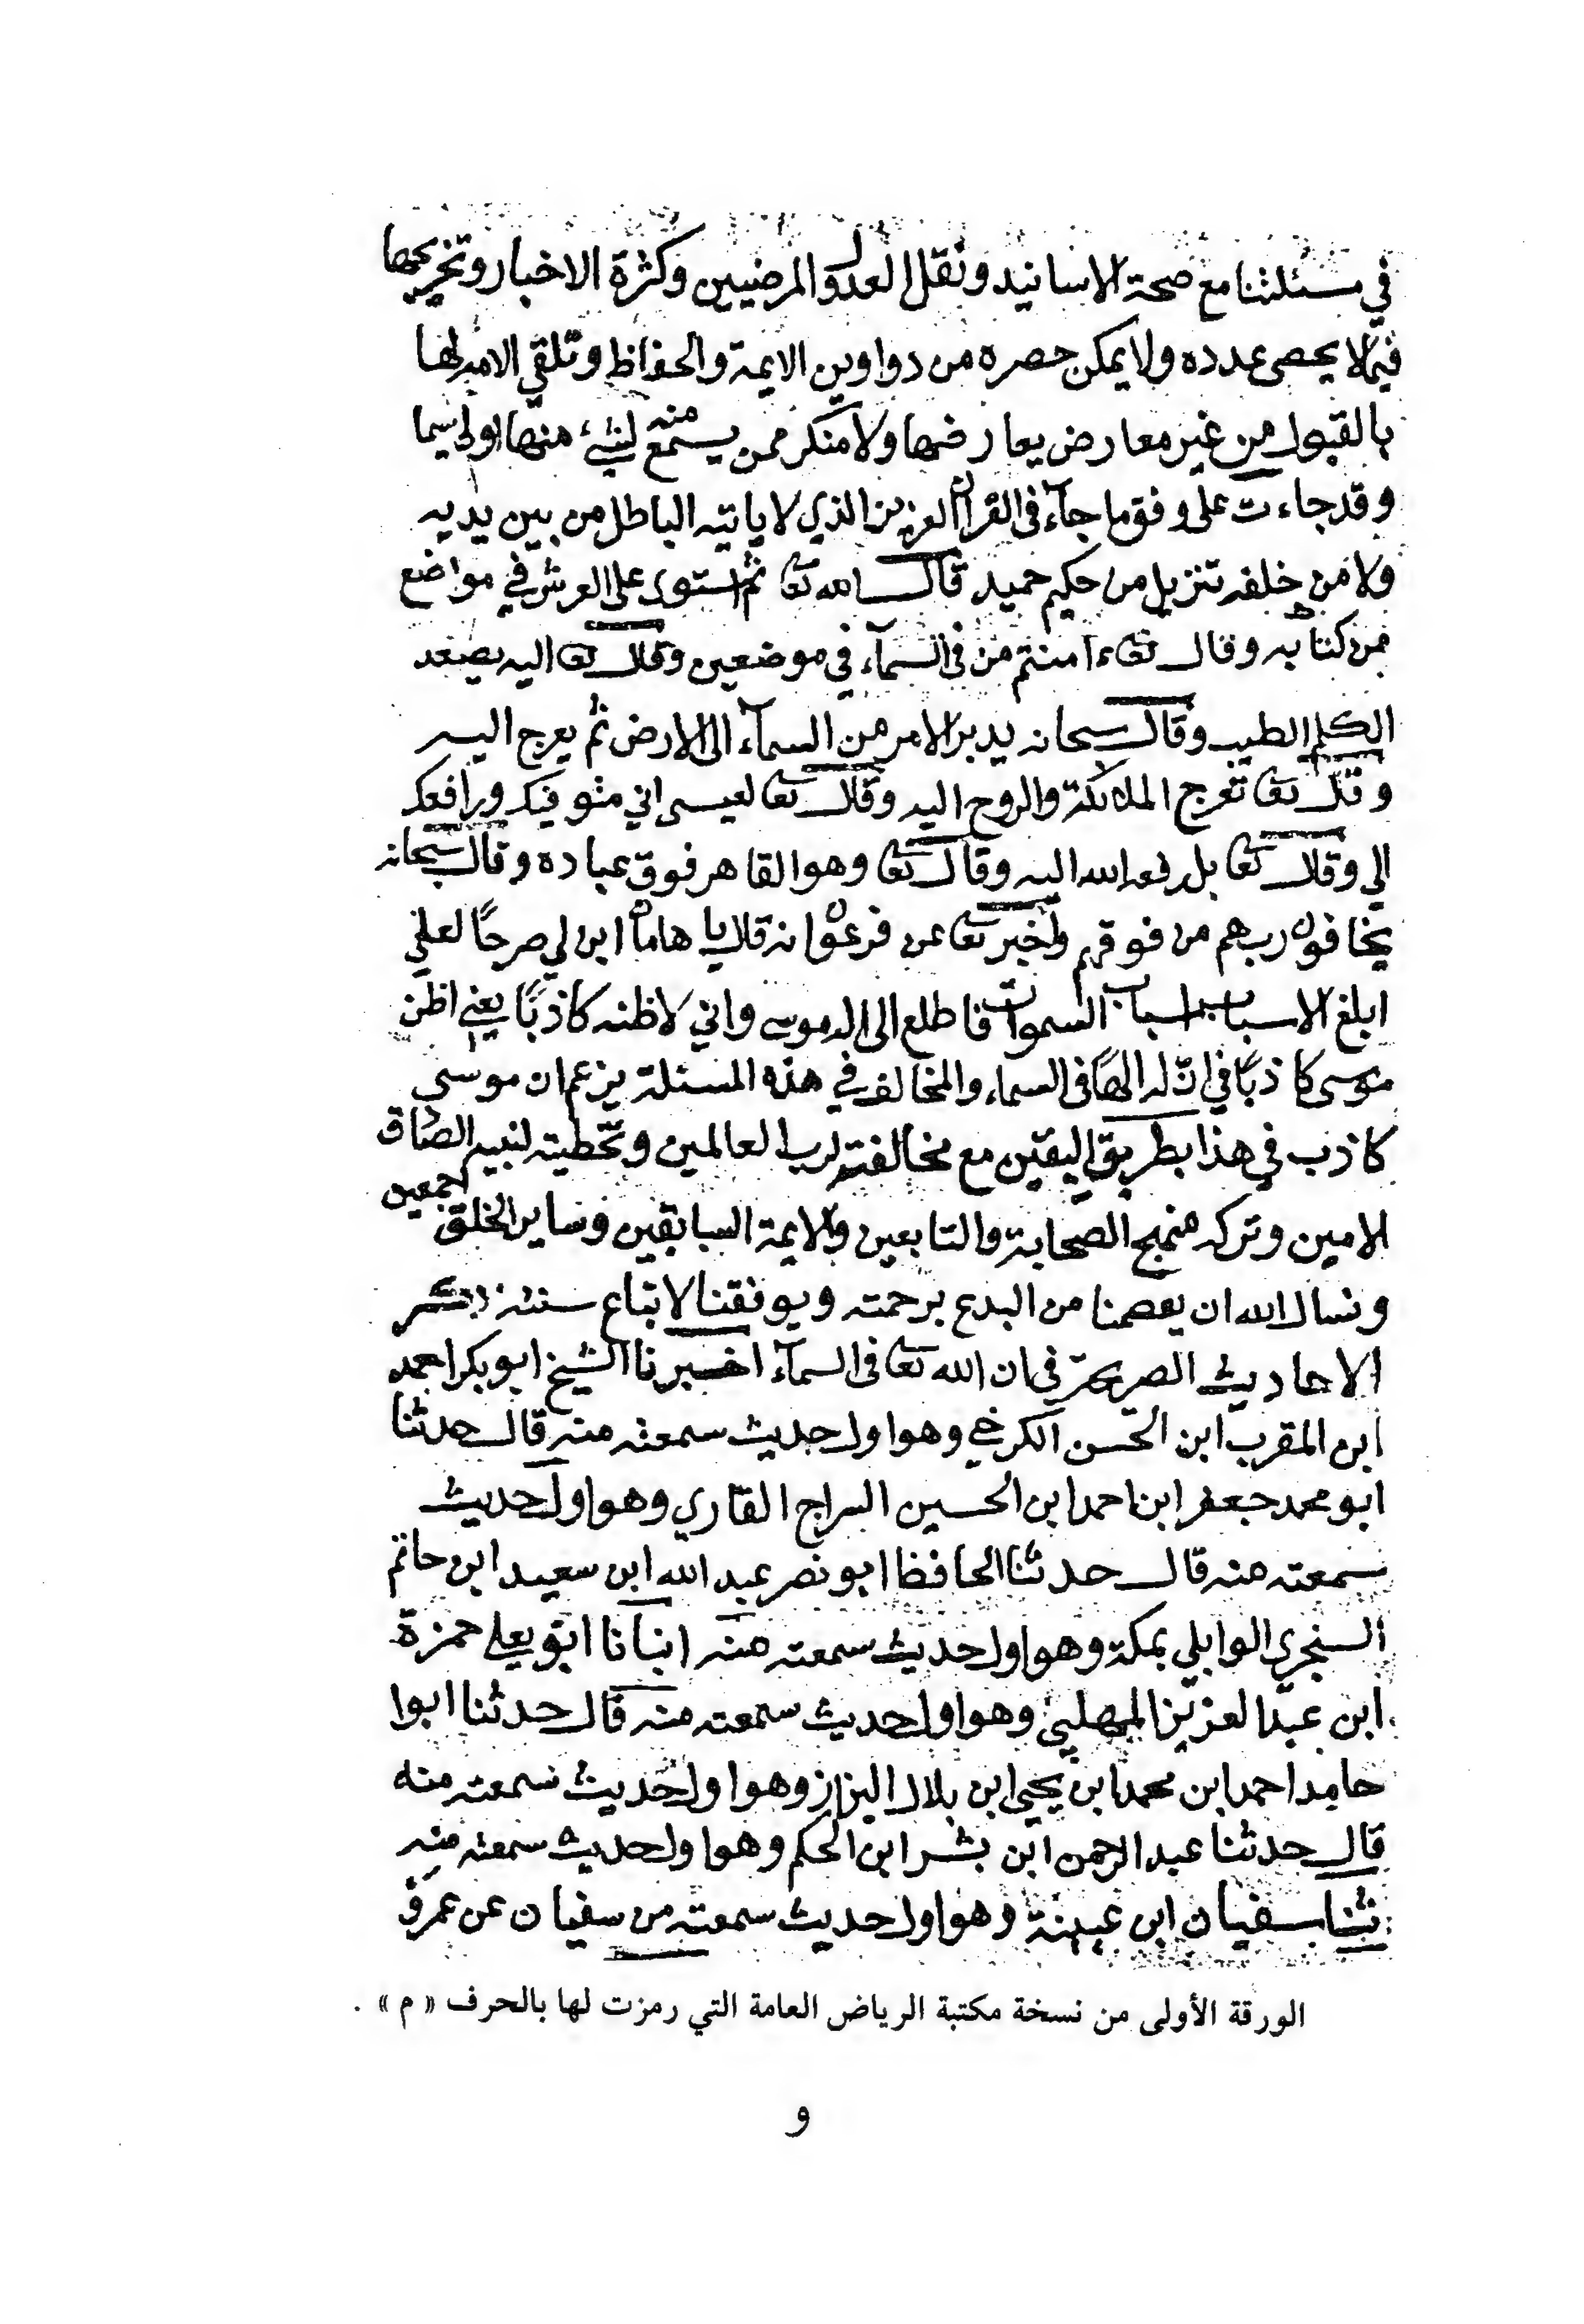 في مسئلتنا مع صحة الاسانيد ونقل العدول المرضيين وكثرة الاخبار وتخريجها
فيما لا يحصى عدده ولا يمكن حصره من دواوين الايمة والحفاظ وتلقي الامة لها
بالقبول من غير معارض يعارضها ولا منكر ممن يسمع منه لشيء منها ولاسيما
وقد جاءت على وفق ما جآء فى القرآن العزيز الذي لا ياتيه الباطل من بين يديه
ولا من خلفه تنزيل من حكيم حميد قال الله تعا ثم استوى على العرش في مواضع
من كتابه وقال تعا ءامنتم من فى السمآء في موضعين وقال تعا اليه يصعد
الكلم الطيب وقال سبحانه يدبر الامر من السمآء الى الارض ثم يعرج اليه
وقال تعا تعرج الملائكة والروح اليه وقال تعا لعيسى اني متوفيك ورافعك
الي وقال تعا بل رفعه الله اليه وقال تعا وهو القاهر فوق عباده وقال سبحانه
يخافون ربهم من فوقهم واخبر تعا عن فرعون انه قال يا هامان ابن لي صرحًا لعلي
ابلغ الاسباب اسباب السموات فاطلع الى اله موسى واني لاظنه كاذبًا يعني اظن
موسى كاذبًا في ان له الهًا فى السماء والمخالف في هذه المسئلة يزعم ان موسى
كاذب في هذا بطريق اليقين مع مخالفته لرب العالمين وتخطيته لنبيه الصادق
الامين وتركه منهج الصحابة والتابعين والايمة السابقين وساير الخلق اجمعين
ونسال الله ان يعصمنا من البدع برحمته ويوفقنا لاتباع سنته ذكر
الاحاديث الصريحة في ان الله تعا فى السمآء اخبرنا الشيخ ابو بكر احمد
ابن المقرب ابن الحسن الكرخي وهو اول حديث سمعته منه قال حدثنا
ابو محمد جعفر ابن احمد ابن الحسين السراج القاري وهو اول حديث
سمعته منه قال حدثنا الحافظ ابو نصر عبد الله ابن سعيد ابن حاتم
السنجري الوايلي بمكة وهو اول حديث سمعته منه انبانا ابو يعلى حمزة
ابن عبد العزيز المهلبي وهو اول حديث سمعته منه قال حدثنا ابوا
حامد احمد ابن محمد ابن يحيى ابن بلال البزاز وهو اول حديث سمعته منه
قال حدثنا عبد الرحمن ابن بشر ابن الحكم وهو اول حديث سمعته منه
ثنا سفيان ابن عيينة وهو اول حديث سمعته من سفيان عن عمرو
الورقة الأولى من نسخة مكتبة الرياض العامة التي رمزت لها بالحرف « م » .
و